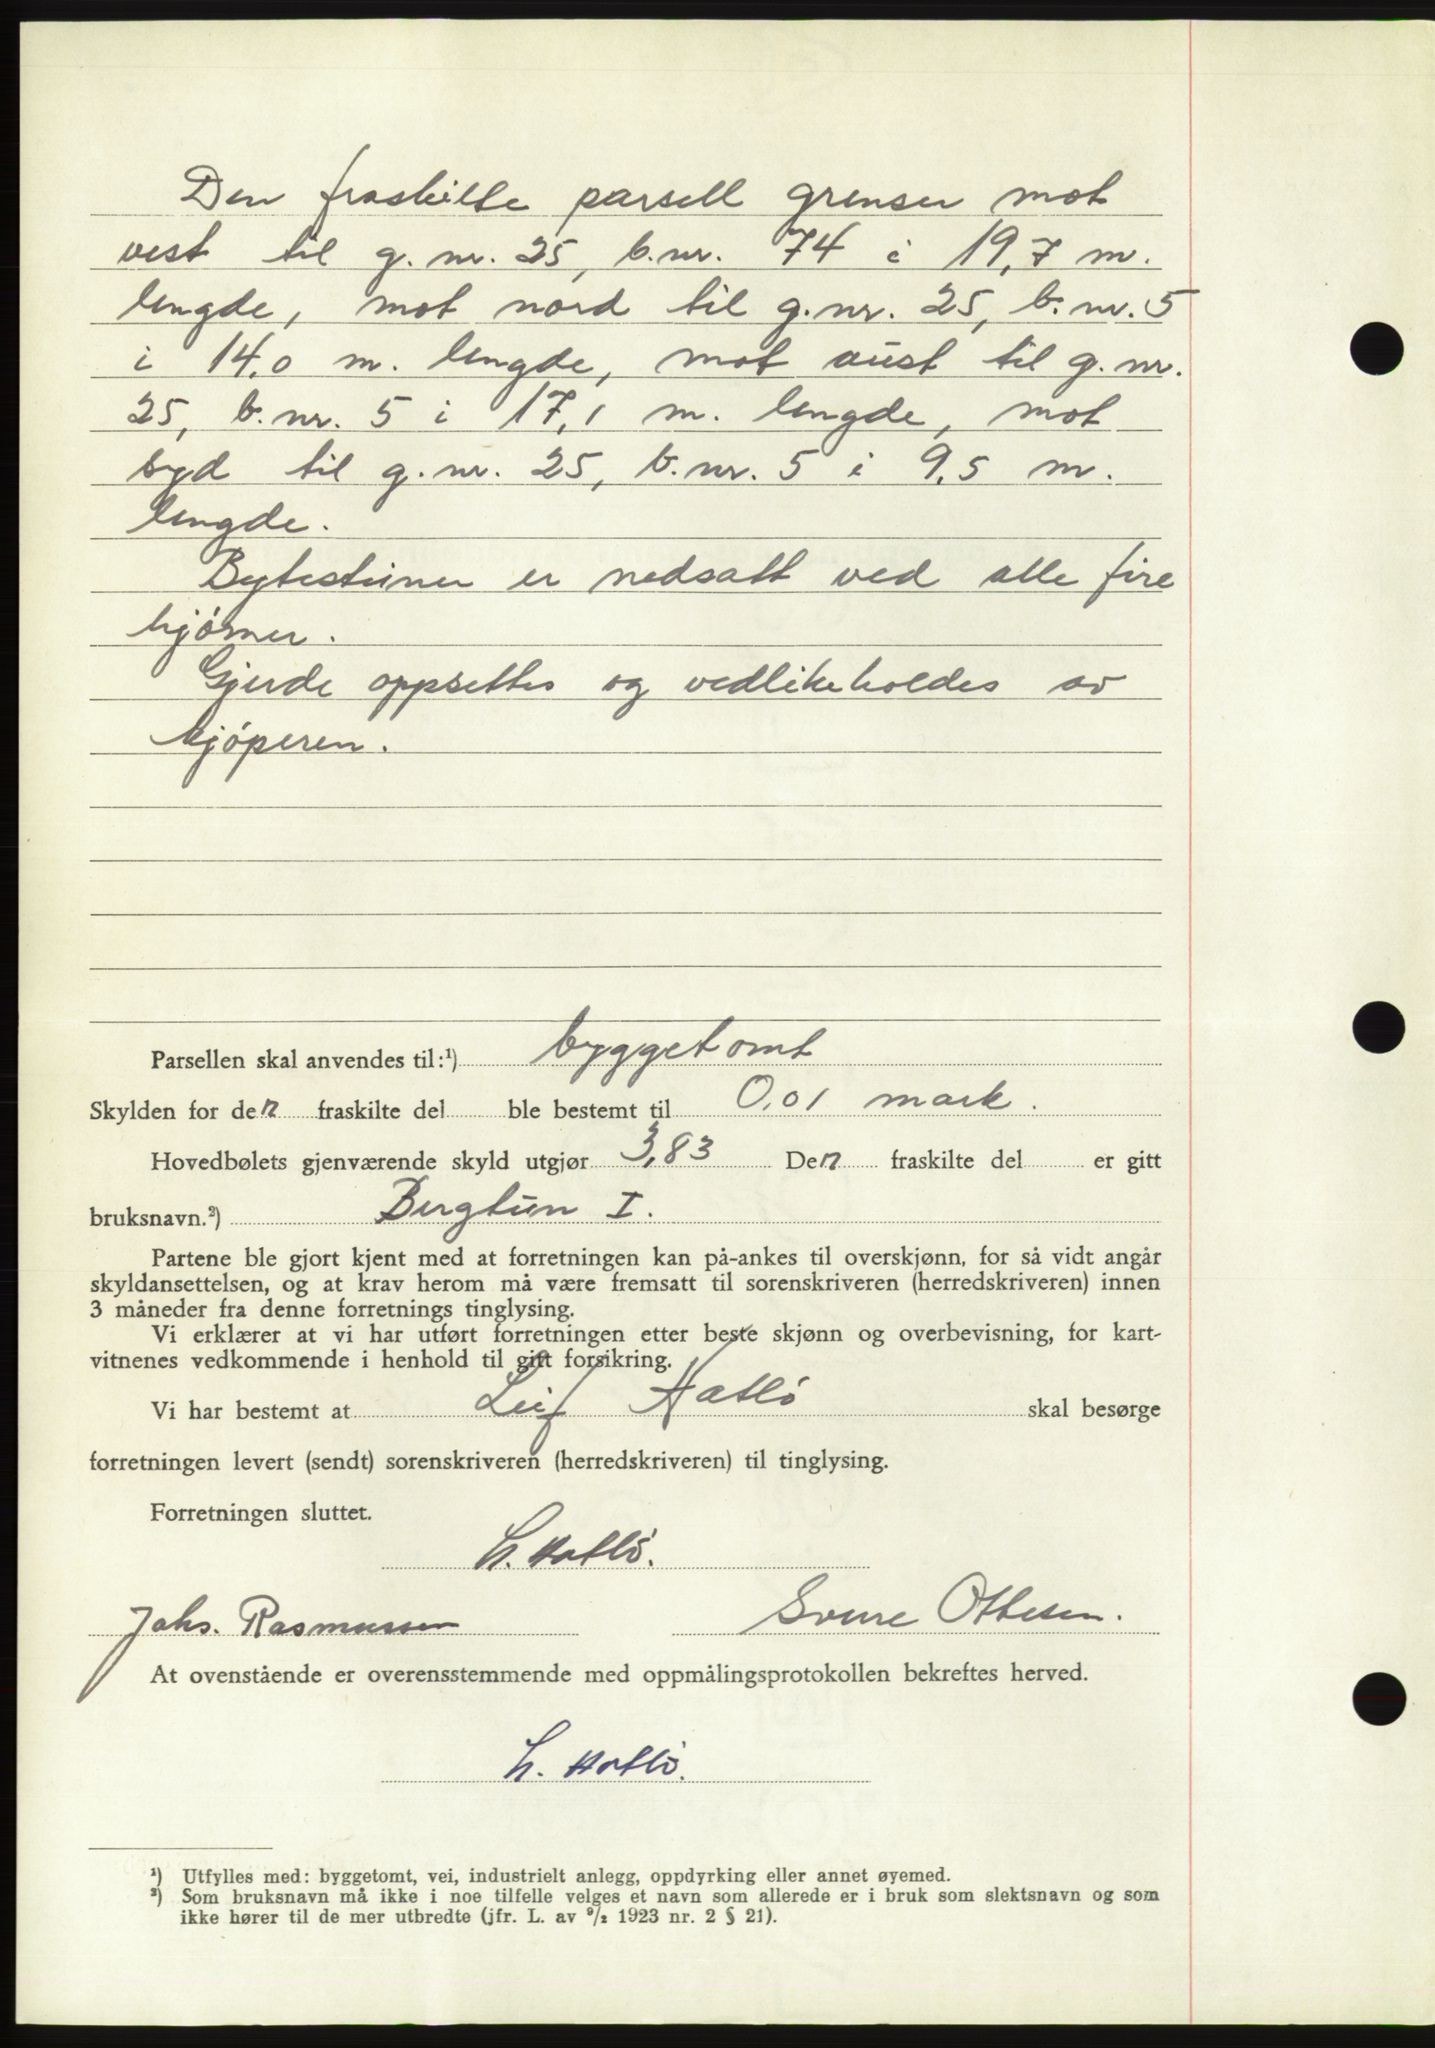 Den fraskilte parsell grenser mot
vest til g. nr. 25, b. nr. 74 i 19,7 m.
lengde, mot nord til g. nr. 25, b. nr. 5
i 14,0 m. lengde, mot aust til g. nr.
25, b. nr. 5 i 17,1 m. lengde, mot
syd til g. nr. 25, b. nr. 5 i 9,5 m.
lengde.
Bytesteiner er nedsatt ved alle fire
hjörner.
Gjerde oppsettes og vedlikeholdes av
kjöperen.
Parsellen skal anvendes til:¹) byggetomt
Skylden for den fraskilte del ble bestemt til 0,01 mark.
Hovedbølets gjenværende skyld utgjør 3,83 Den fraskilte del er gitt
bruksnavn.²) Bergtun I.
Partene ble gjort kjent med at forretningen kan på-ankes til overskjønn, for så vidt angår
skyldansettelsen, og at krav herom må være fremsatt til sorenskriveren (herredskriveren) innen
3 måneder fra denne forretnings tinglysing.
Vi erklærer at vi har utført forretningen etter beste skjønn og overbevisning, for kart-
vitnenes vedkommende i henhold til gitt forsikring.
Vi har bestemt at Leif Hatlö skal besørge
forretningen levert (sendt) sorenskriveren (herredskriveren) til tinglysing.
Forretningen sluttet.
L. Hatlö.
Johs. Rasmussen Sverre Ottesen.
At ovenstående er overensstemmende med oppmålingsprotokollen bekreftes herved.
L. Hatlö.
¹) Utfylles med: byggetomt, vei, industrielt anlegg, oppdyrking eller annet øyemed.
²) Som bruksnavn må ikke i noe tilfelle velges et navn som allerede er i bruk som slektsnavn og som
ikke hører til de mer utbredte (jfr. L. av ⁹/₂ 1923 nr. 2 § 21).